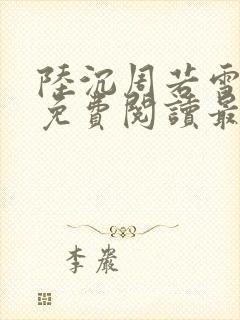 陸沉周若雪
免費閱讀最
李嚴